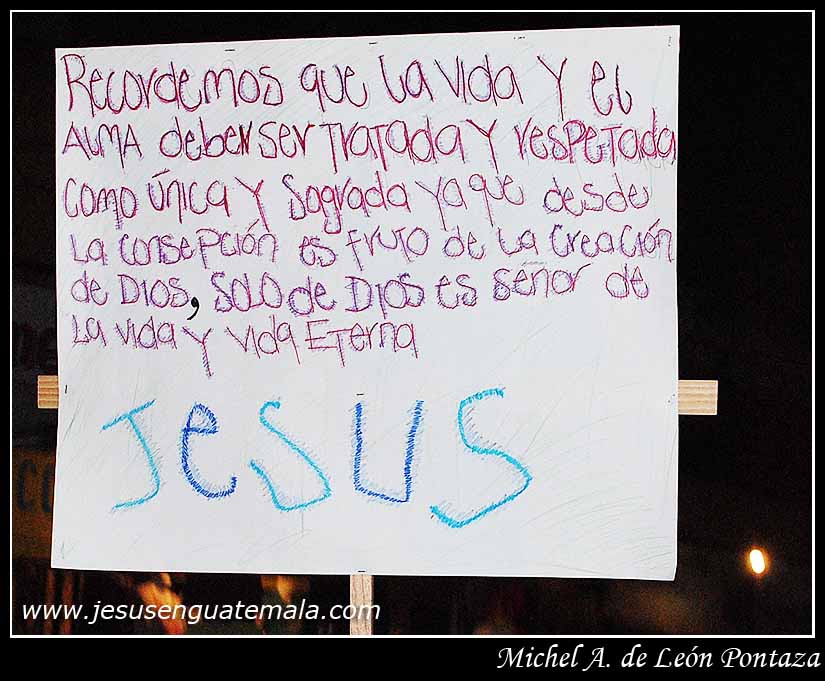 Recordemos que la vida y el
ALMA deben ser TRATADA y respetada
como única y Sagrada ya que desde
la consepción es fruto de la creación
de Dios, solo de Dios es señor de
la vida y vida Eterna
JESUS
www.jesusenguatemala.com
Michel A. de León Pontaza